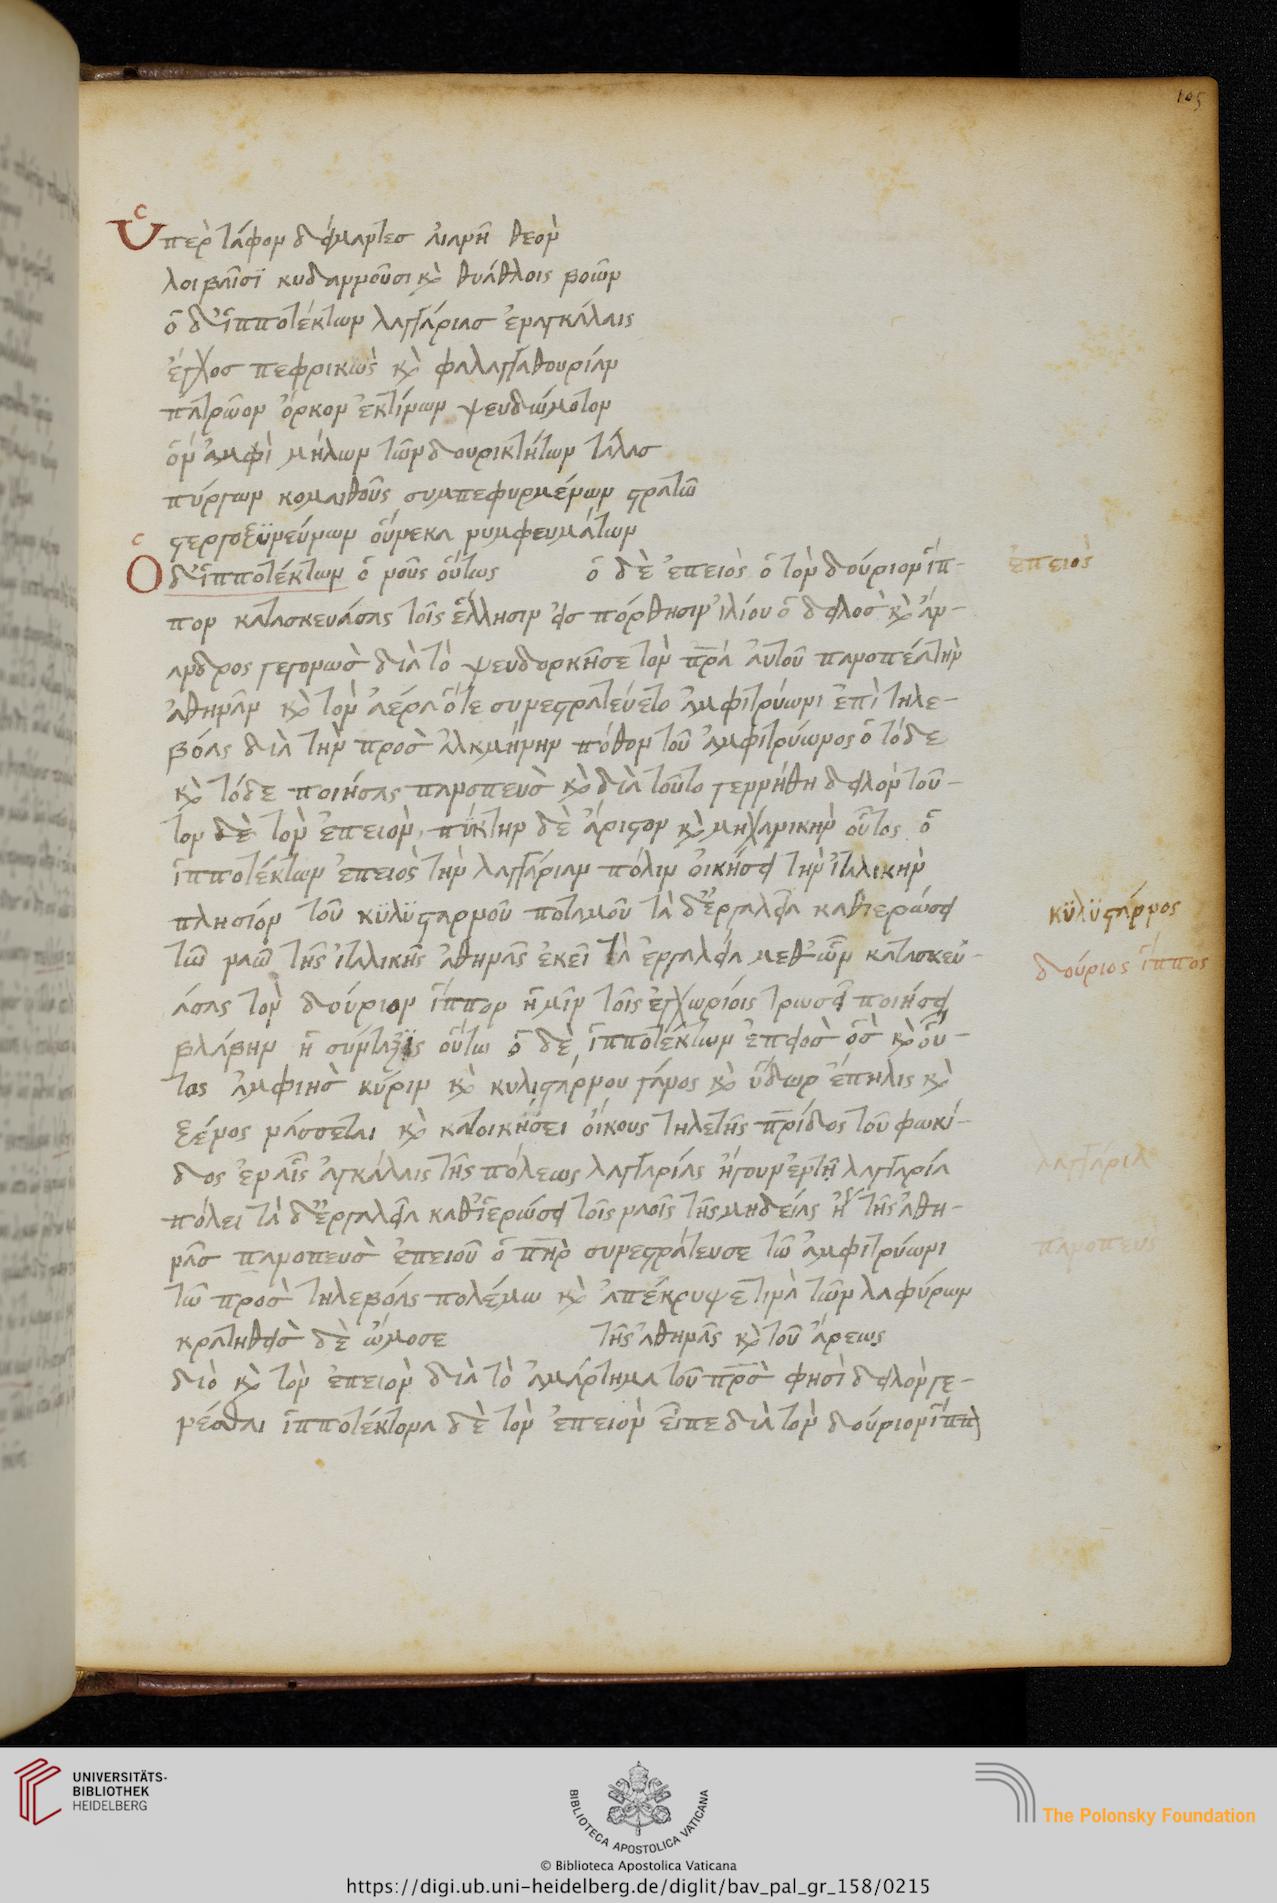 105
Ὑπὲρ τάφον δάμαντες αἰανῆ θεὸν
λοιβαῖσϊ κυδανοῦσι κ θυάθλοις βοῶν
ὁ δ' ἱπποτέκτων λαγγάριας ἐν ἀγκάλαις
ἔγχος πεφρικὼς κ φάλαγγα θουρίαν
πατρῶον ὅρκον ἐκτίνων ψευδώμοτον
ὃν ἀμφὶ μήλων τῶν δουρικτήτων τάλας
πύργων κομαιθοῦς συμπεφυρμένων στρατῶ
στεργοξϋνεύνων οὕνεκα νυμφευμάτων
Ὁ δ' ἱπποτέκτων ὁ νοῦς οὕτως ὁ δὲ ἐπειὸς ὁ τὸν δούριον ἵπ-
πον κατασκευάσας τοῖς ἕλλησιν εἰς πόρθησιν ἰλίου ὁ δειλὸς κ ἄν-
ανδρος γεγονὼς διὰ τὸ ψευδορκῆσε τὸν πρα αὐτοῦ πανοπέα τὴν
ἀθηνᾶν κ τὸν ἄρεα ὅτε συνεστρατεύετο ἀμφιτρύωνι ἐπὶ τηλε-
βόας διὰ τὴν πρὸς ἀλκμήνην πόθον τοῦ ἀμφιτρύωνος ὁ τόδε
κ τόδε ποιήσας πανοπεὺς κ διὰ τοῦτο γεννήθη δειλὸν τοῦ-
τον δὲ τὸν ἐπειὸν, πύκτην δὲ ἄριστον κ μηχανικὴν οὗτος ὁ
ἱπποτέκτων ἐπειὸς τὴν λαγγάριαν πόλιν οἰκήσει τὴν ἰταλικὴν
πλησίον τοῦ κϋλϋσταρνοῦ ποταμοῦ τὰ δ' ἐργαλεῖα καθιερώσει
τῶ ναῶ τῆς ἰταλικῆς ἀθηνᾶς ἐκεῖ τὰ ἐργαλεῖα μεθ' ὧν κατασκευ-
άσας τὸν δούριον ἵππον ἡμῖν τοῖς ἐγχωρίοις τρωσεὶ ποιήσει
βλάβην ἡ σύνταξϊς οὕτω ὁ δὲ ἱπποτέκτων ἐπειὸς ὃς κ οὗ-
τος ἀμφὶ ἧς κύριν κ κυλιστάρνου γάνος κ ὕδωρ ἔπηλις κ
ξένος νάσσεται κ κατοικήσει οἴκους τηλε τῆς πρίδος τοῦ φωκί-
δος ἐν αἷς ἀγκάλαις τῆς πόλεως λαγγαρίας ἤγουν ἐν τῆ λαγγαρία
πόλει τὰ δ' ἐργαλεῖα καθιερώσει τοῖς ναοῖς τῆς μηδείας ἤ τῆς ἀθη-
νᾶς πανοπεὺς ἐπειοῦ ὁ πηρ συνεστράτευσε τῶ ἀμφιτρύωνι
τῶ πρὸς τηλεβόας πολέμω κ ἀπέκρυψε τινὰ τῶν λαφύρων
κρατηθεὶς δὲ ὤμοσε τῆς ἀθηνᾶς κ τοῦ ἄρεως
διὸ κ τὸν ἐπειὸν διὰ τὸ ἁμάρτημα τοῦ πρς φησὶ δειλὸν γε-
νέσθαι ἱπποτέκτονα δὲ τὸν ἐπειὸν εἶπε διὰ τὸν δούριον ἵππ
ἐπειὸς
κϋλϋστάρνος
δούριος ἵππος
λαγγάρια
πανοπεύς
UNIVERSITÄTS-
BIBLIOTHEK
HEIDELBERG
BIBLIOTECA APOSTOLICA VATICANA
The Polonsky Foundation
© Biblioteca Apostolica Vaticana
https://digi.ub.uni-heidelberg.de/diglit/bav_pal_gr_158/0215